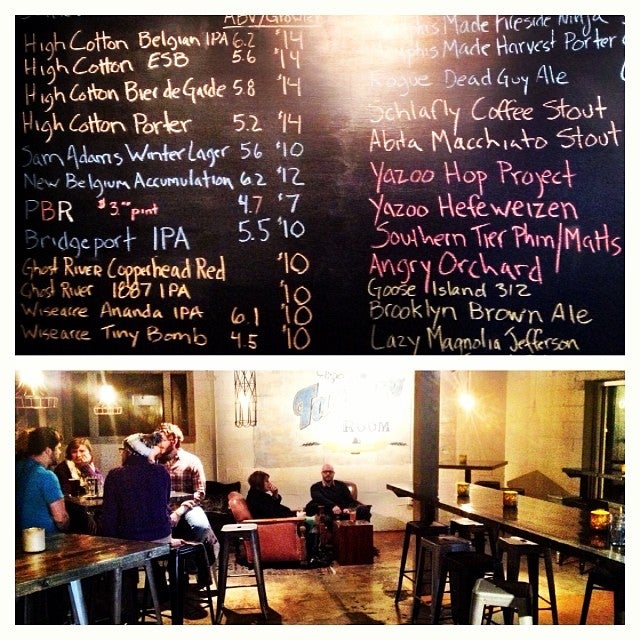 ABV/Growler
High Cotton Belgian IPA 6.2 $14
High Cotton ESB 5.6 $14
High Cotton Bier de Garde 5.8 $14
High Cotton Porter 5.2 $14
Sam Adams Winter Lager 5.6 $10
New Belgium Accumulation 6.2 $12
PBR $3.00 pint 4.7 $7
Bridgeport IPA 5.5 $10
Ghost River Copperhead Red $10
Ghost River 1887 IPA $10
Wiseacre Ananda IPA 6.1 $10
Wiseacre Tiny Bomb 4.5 $10
Memphis Made Fireside Ninja
Memphis Made Harvest Porter
Rogue Dead Guy Ale
Schlafly Coffee Stout
Abita Macchiato Stout
Yazoo Hop Project
Yazoo Hefeweizen
Southern Tier Phin/Matts
Angry Orchard
Goose Island 312
Brooklyn Brown Ale
Lazy Magnolia Jefferson
ROOM